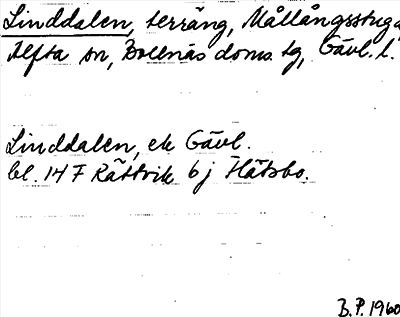 Linddalen, terräng, Mållångsstuga,
Alfta sn, Bollnäs doms. tg, Gävl. l.
Linddalen, ek Gävl.
bl. 14 F Rättvik 6 j Hätsbo.
B.P. 1960